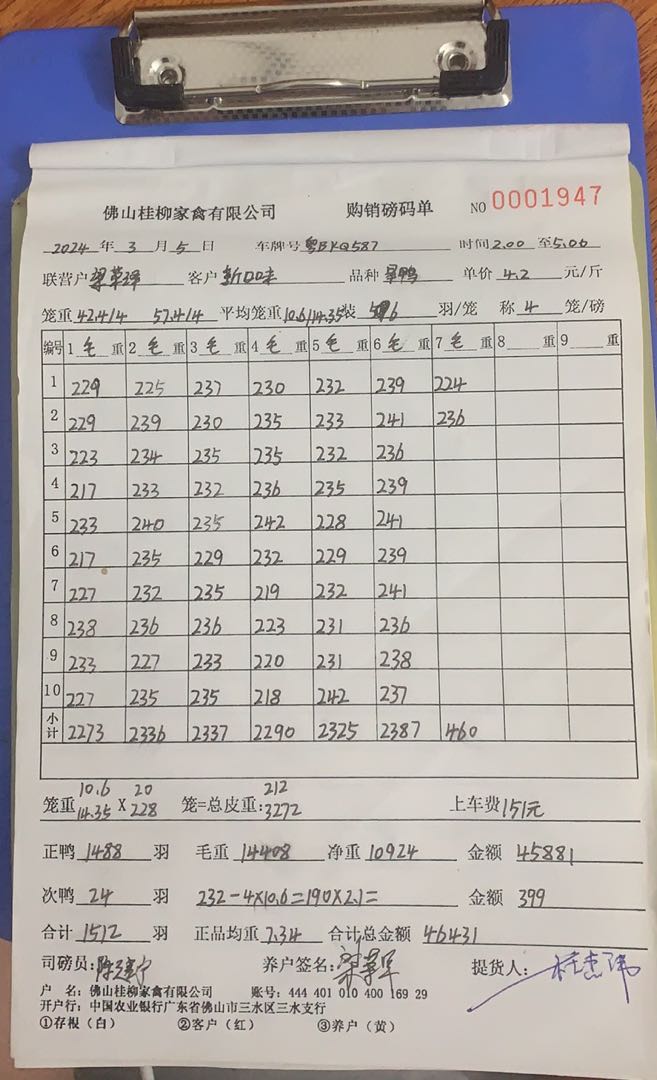 佛山桂柳家禽有限公司 购销磅码单 NO 0001947
2024 年 3 月 5 日 车牌号 粤BKQ587 时间 2.00 至 5.00
联营户 客户 新口味 品种 单价 4.2 元/斤
笼重 42.4/4 57.4/4 平均笼重 10.6/14.35 装 6 羽/笼 称 4 笼/磅
编号 1 毛 重 2 毛 重 3 毛 重 4 毛 重 5 毛 重 6 毛 重 7 毛 重 8 重 9 重
1 229 225 237 230 232 239 224
2 229 239 230 235 233 241 236
3 223 234 235 235 232 236
4 217 233 232 236 235 239
5 233 240 235 242 228 241
6 217 235 229 232 229 239
7 227 232 235 219 232 241
8 238 236 236 223 231 236
9 233 227 233 220 231 238
10 227 235 235 218 242 237
小计 2273 2336 2337 2290 2325 2387 460
10.6 20 212
笼重 14.35 X 228 笼=总皮重: 3272 上车费 151元
正鸭 1488 羽 毛重 14408 净重 10924 金额 45881
次鸭 24 羽 232-4×10.6=190×2.1= 金额 399
合计 1512 羽 正品均重 7.34 合计总金额 46431
司磅员: 养户签名: 提货人:
户 名: 佛山桂柳家禽有限公司 账号: 444 401 010 400 169 29
开户行: 中国农业银行广东省佛山市三水区三水支行
①存根(白) ②客户(红) ③养户(黄)